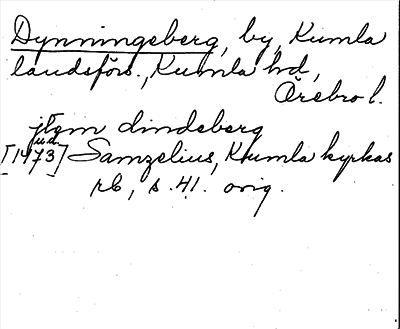 Dynningeberg, by, Kumla
landsförs., Kumla hd,
Örebro l.
jtem dindeberg
u.d.
[1473] Samzelius, Kumla kyrkas
rb, s. 41. orig.